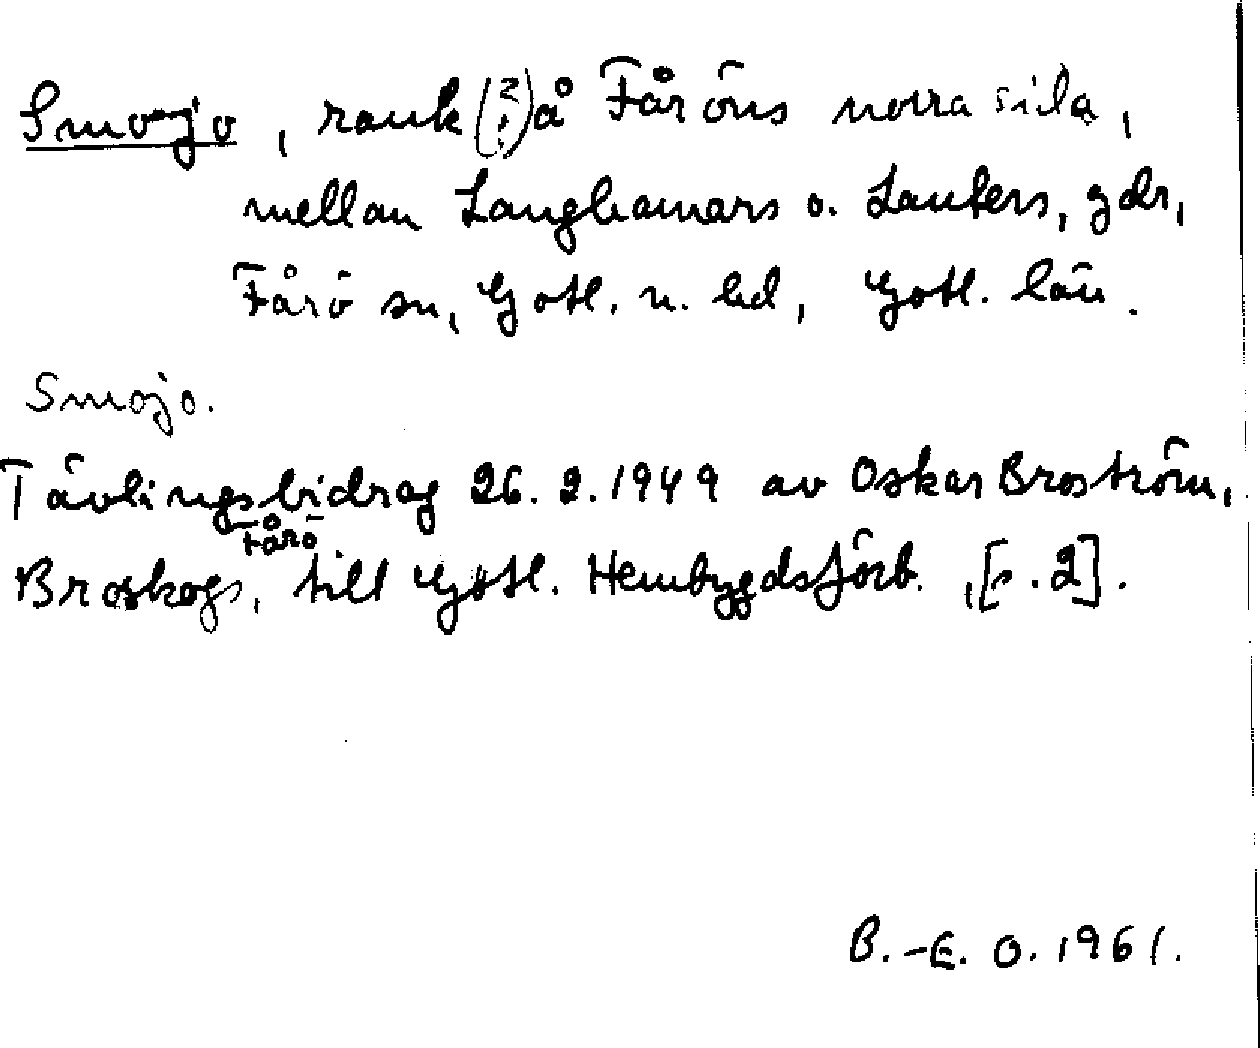 Smojo, rauk (?) å Fåröns norra sida,
mellan Langhamars o. Lauters, gdr,
Fårö sn, Gotl. n. hd, Gotl. län.
Smojo.
Tävlingsbidrag 26.2.1949 av Oskar Broström,
Fårö
Broskogs, till Gotl. Hembygdsförb., [s. 2].
B.-E. O. 1961.